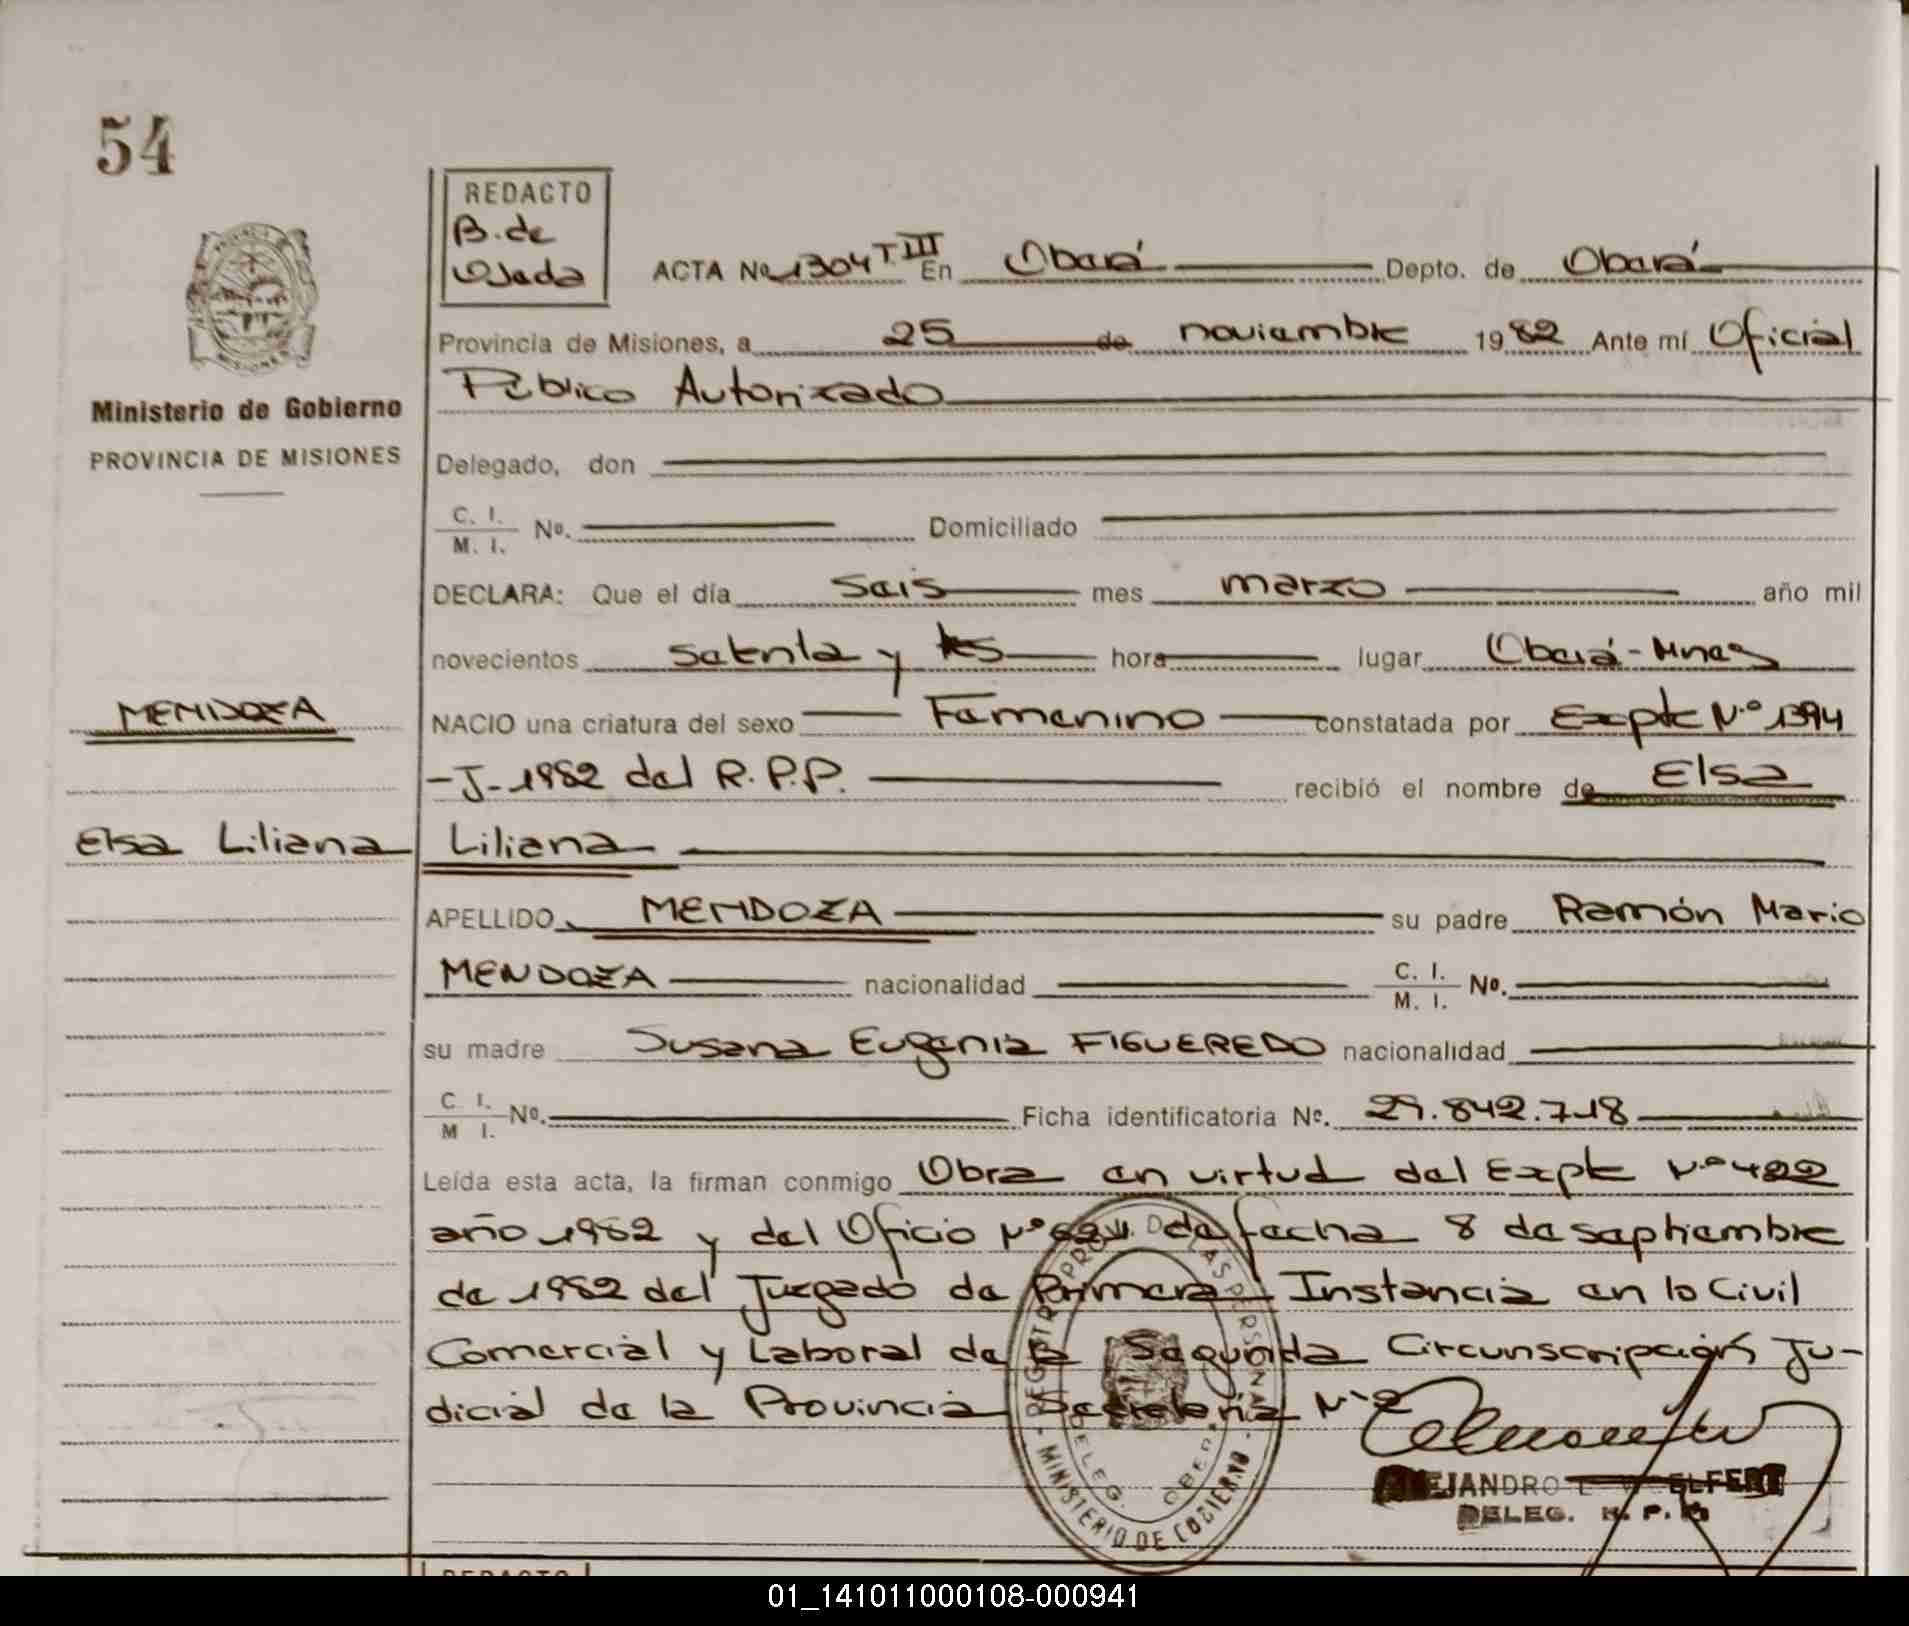 54
REDACTO
B. de
Ojeda
ACTA No 1304 T III En Oberá Depto. de Oberá
Provincia de Misiones, a 25 de noviembre 1982 Ante mí Oficial
Público Autorizado
Ministerio de Gobierno
PROVINCIA DE MISIONES
Delegado, don
C. I.
M. I. No. Domiciliado
DECLARA: Que el día seis mes marzo año mil
novecientos setenta y tres hora lugar Oberá - Mnes
MENDOZA
NACIO una criatura del sexo Femenino constatada por Expte N.º 1394
-J-1982 del R.P.P. recibió el nombre de Elsa
Elsa Liliana
Liliana
APELLIDO MENDOZA su padre Ramón Mario
MENDOZA nacionalidad C. I.
M. I. No.
su madre Susana Eugenia FIGUEREDO nacionalidad
C. I.
M I. No. Ficha identificatoria Nº. 29.842.718
Leída esta acta, la firman conmigo Obra en virtud del Expte N.º 422
año 1982 y del Oficio Nº de fecha 8 de septiembre
de 1982 del Juzgado de Primera Instancia en lo Civil
Comercial y Laboral de la Segunda Circunscripción Ju-
dicial de la Provincia Secretaria Nº 2
MINISTERIO DE GOBIERNO
DELEG. OBERA
DELEG. R. P. P.
REDACTO
01_141011000108-000941